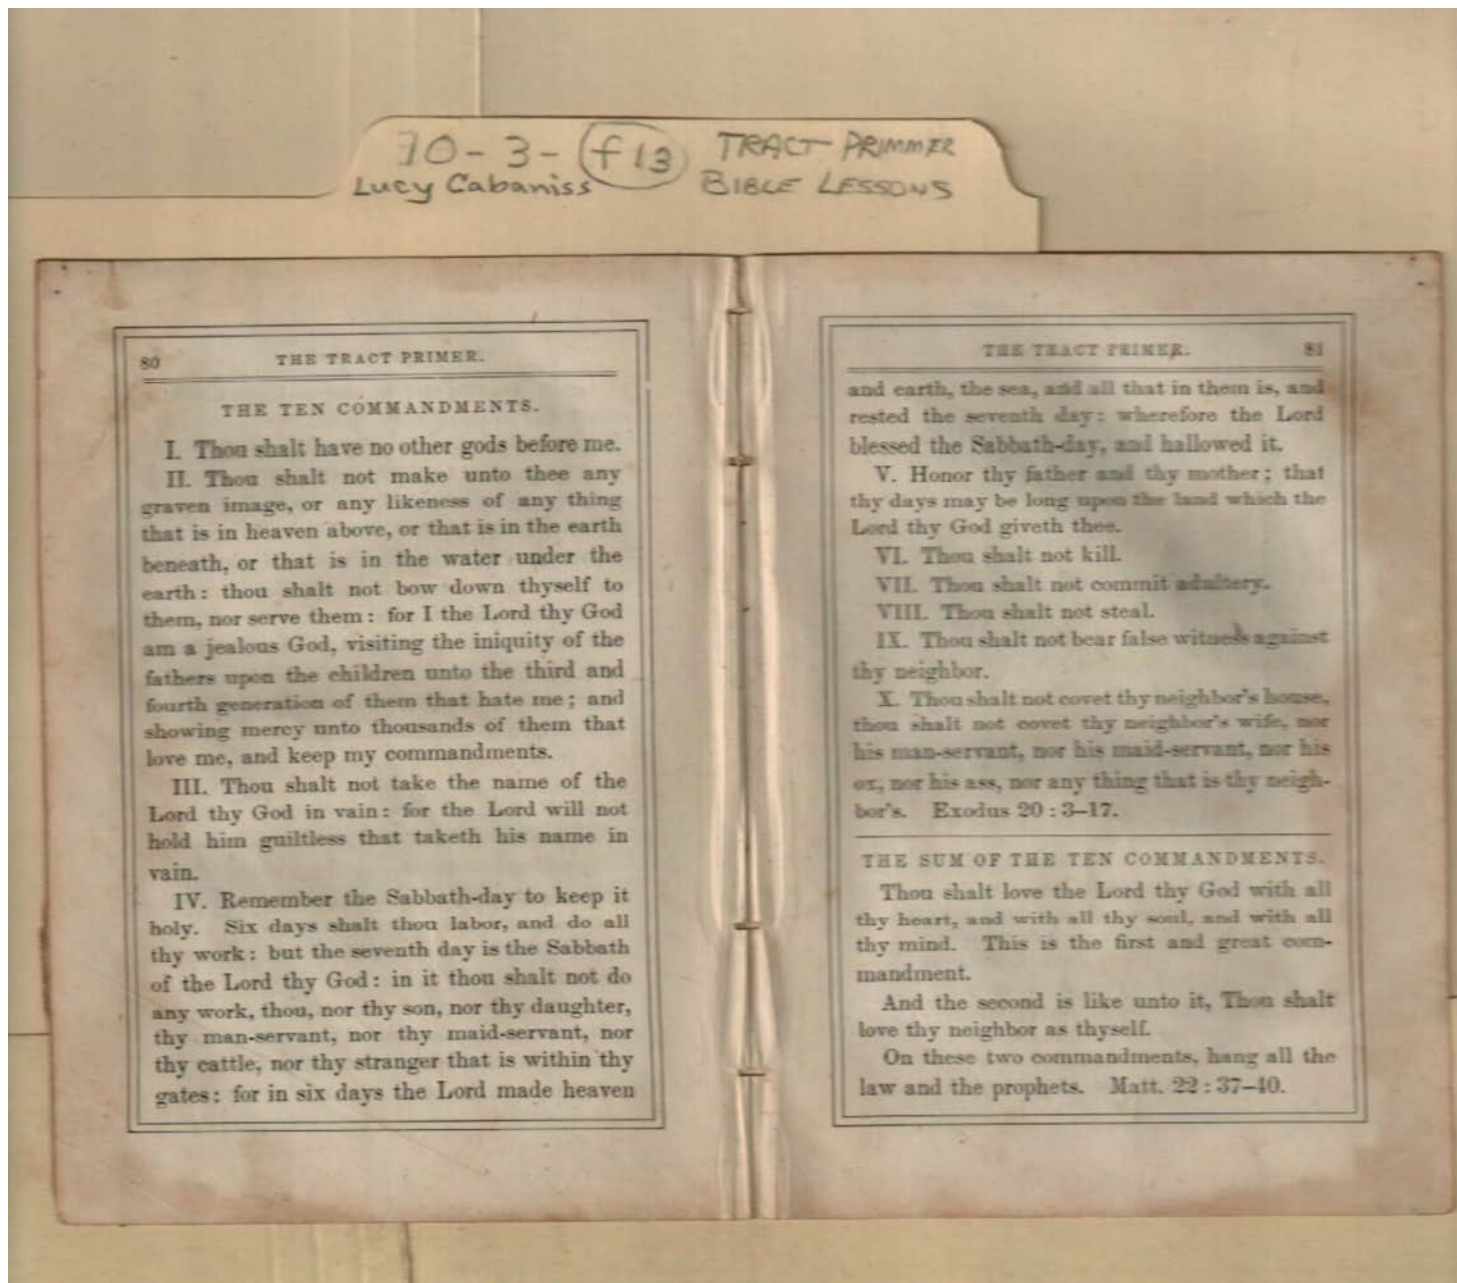 70-3-f13 TRACT PRIMMER
Lucy Cabaniss BIBLE LESSONS
80 THE TRACT PRIMER.
THE TEN COMMANDMENTS.
I. Thou shalt have no other gods before me.
II. Thou shalt not make unto thee any
graven image, or any likeness of any thing
that is in heaven above, or that is in the earth
beneath, or that is in the water under the
earth: thou shalt not bow down thyself to
them, nor serve them: for I the Lord thy God
am a jealous God, visiting the iniquity of the
fathers upon the children unto the third and
fourth generation of them that hate me; and
showing mercy unto thousands of them that
love me, and keep my commandments.
III. Thou shalt not take the name of the
Lord thy God in vain: for the Lord will not
hold him guiltless that taketh his name in
vain.
IV. Remember the Sabbath-day to keep it
holy. Six days shalt thou labor, and do all
thy work: but the seventh day is the Sabbath
of the Lord thy God: in it thou shalt not do
any work, thou, nor thy son, nor thy daughter,
thy man-servant, nor thy maid-servant, nor
thy cattle, nor thy stranger that is within thy
gates: for in six days the Lord made heaven
THE TRACT PRIMER. 81
and earth, the sea, and all that in them is, and
rested the seventh day: wherefore the Lord
blessed the Sabbath-day, and hallowed it.
V. Honor thy father and thy mother; that
thy days may be long upon the land which the
Lord thy God giveth thee.
VI. Thou shalt not kill.
VII. Thou shalt not commit adultery.
VIII. Thou shalt not steal.
IX. Thou shalt not bear false witness against
thy neighbor.
X. Thou shalt not covet thy neighbor's house,
thou shalt not covet thy neighbor's wife, nor
his man-servant, nor his maid-servant, nor his
ox, nor his ass, nor any thing that is thy neigh-
bor's. Exodus 20:3–17.
THE SUM OF THE TEN COMMANDMENTS.
Thou shalt love the Lord thy God with all
thy heart, and with all thy soul, and with all
thy mind. This is the first and great com-
mandment.
And the second is like unto it, Thou shalt
love thy neighbor as thyself.
On these two commandments, hang all the
law and the prophets. Matt. 22:37–40.